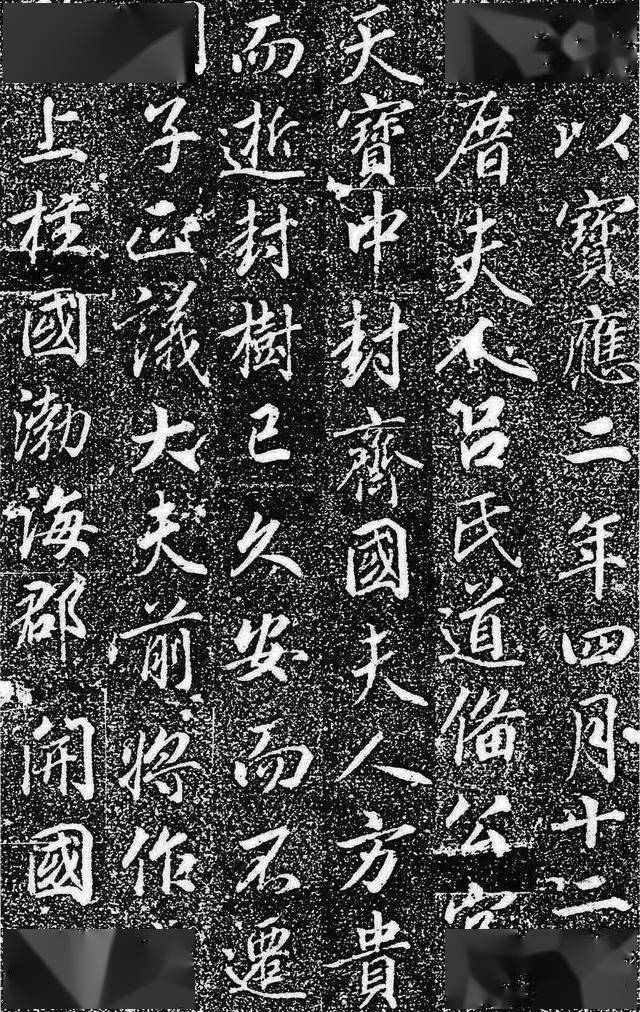 以寶應二年四月十二
曆夫人呂氏道備公
天寶中封齊國夫人方貴
而逝封樹已久安而不遷
子正議大夫前將作
上柱國渤海郡開國